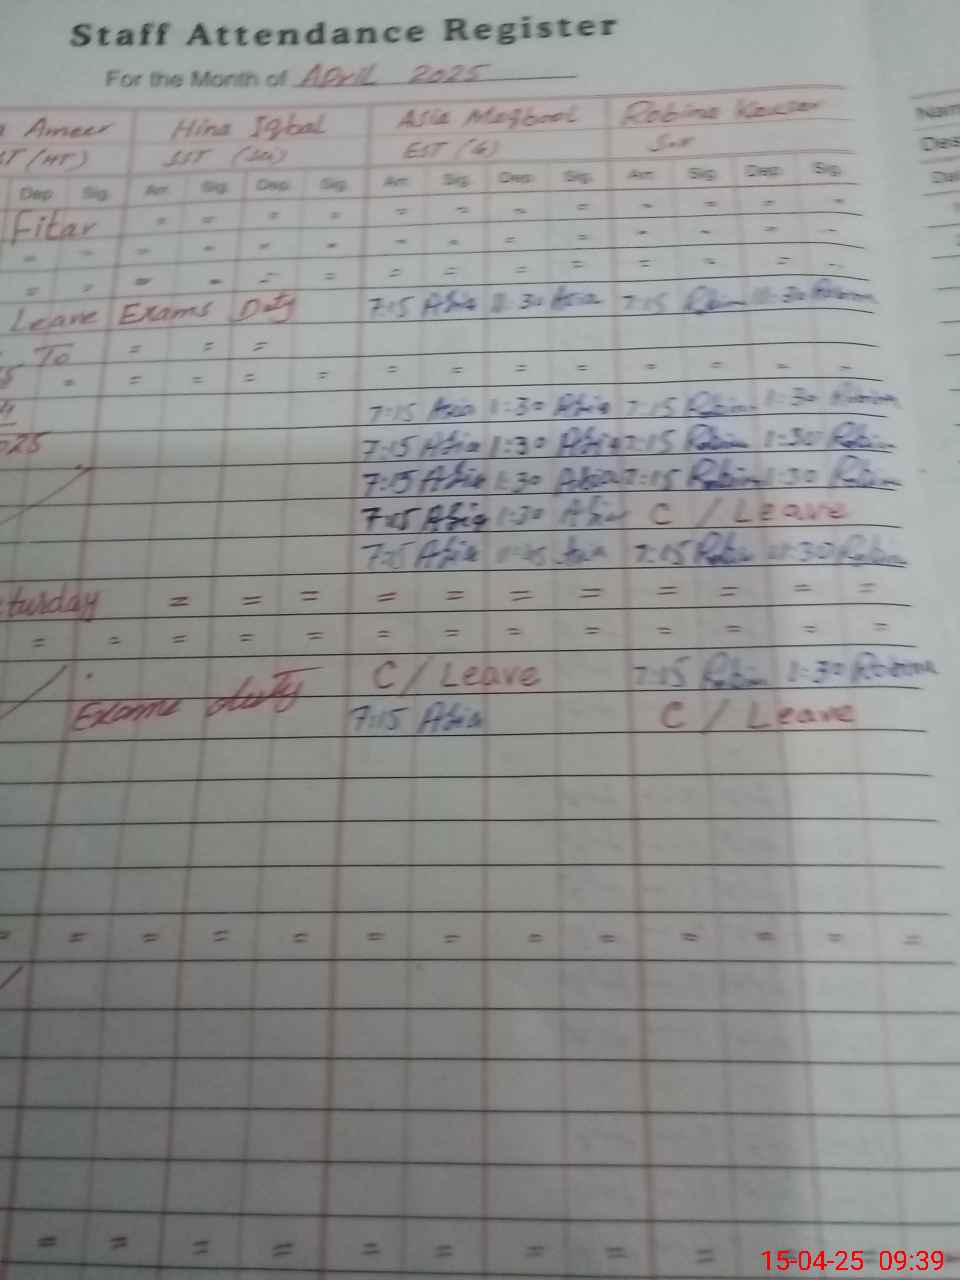 Staff Attendance Register
For the Month of April 2025
Ameer Hina Iqbal Asia Maqbool Robina Kausar Nam
EST (G) Des
Dep Sig. Arr. Sig. Dep. Sig. Arr. Sig. Dep. Sig. Arr. Sig. Dep. Sig.
Fitar = = = = = = = = = = = =
= = = = = = = = = = = = = =
= = = = = = = = = = = = = =
Leave Exams Duty 7:15 Asia 11:30 Asia 7:15 Robina 11:30 Robina
To = = =
= = = = = = = = = = = = =
7:15 Asia 1:30 Asia 7:15 Robina 1:30 Robina
025 7:15 Asia 1:30 Asia 7:15 Robina 1:30 Robina
7:15 Asia 1:30 Asia 7:15 Robina 1:30 Robina
7:15 Asia 1:30 Asia C / Leave
7:15 Asia Asia 7:15 Robina 11:30 Robina
turday = = = = = = = = = = = =
= = = = = = = = = = = = = =
C / Leave 7:15 Robina 1:30 Robina
Exams duty 7:15 Asia C / Leave
= = = = = = = = = = = = = =
= = = = = = = = = =
15-04-25 09:39